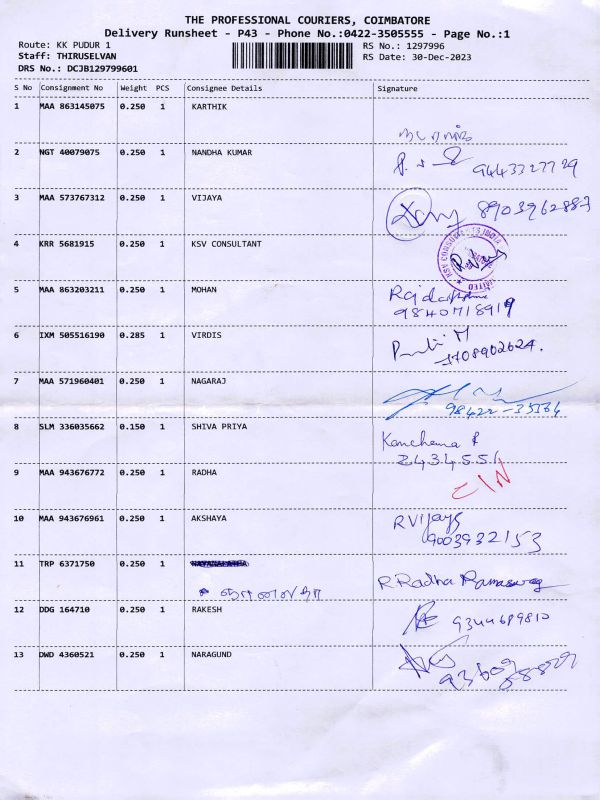 THE PROFESSIONAL COURIERS, COIMBATORE
Delivery Runsheet - P43 - Phone No.:0422-3505555 - Page No.:1
Route: KK PUDUR 1
RS No.: 1297996
Staff: THIRUSELVAN
RS Date: 30-Dec-2023
DRS No.: DCJB129799601
S No Consignment No Weight PCS Consignee Details Signature
1 MAA 863145075 0.250 1 KARTHIK
2 NGT 40079075 0.250 1 NANDHA KUMAR
9443327729
3 MAA 573767312 0.250 1 VIJAYA
8903962883
4 KRR 5681915 0.250 1 KSV CONSULTANT
5 MAA 863203211 0.250 1 MOHAN
9840718919
6 IXM 505516190 0.285 1 VIRDIS
7 MAA 571960401 0.250 1 NAGARAJ
8 SLM 336035662 0.150 1 SHIVA PRIYA
Kanchana
2434551
9 MAA 943676772 0.250 1 RADHA
10 MAA 943676961 0.250 1 AKSHAYA
R Vijaya
9003932153
11 TRP 6371750 0.250 1
R Radha
12 DDG 164710 0.250 1 RAKESH
9344689810
13 DWD 4360521 0.250 1 NARAGUND